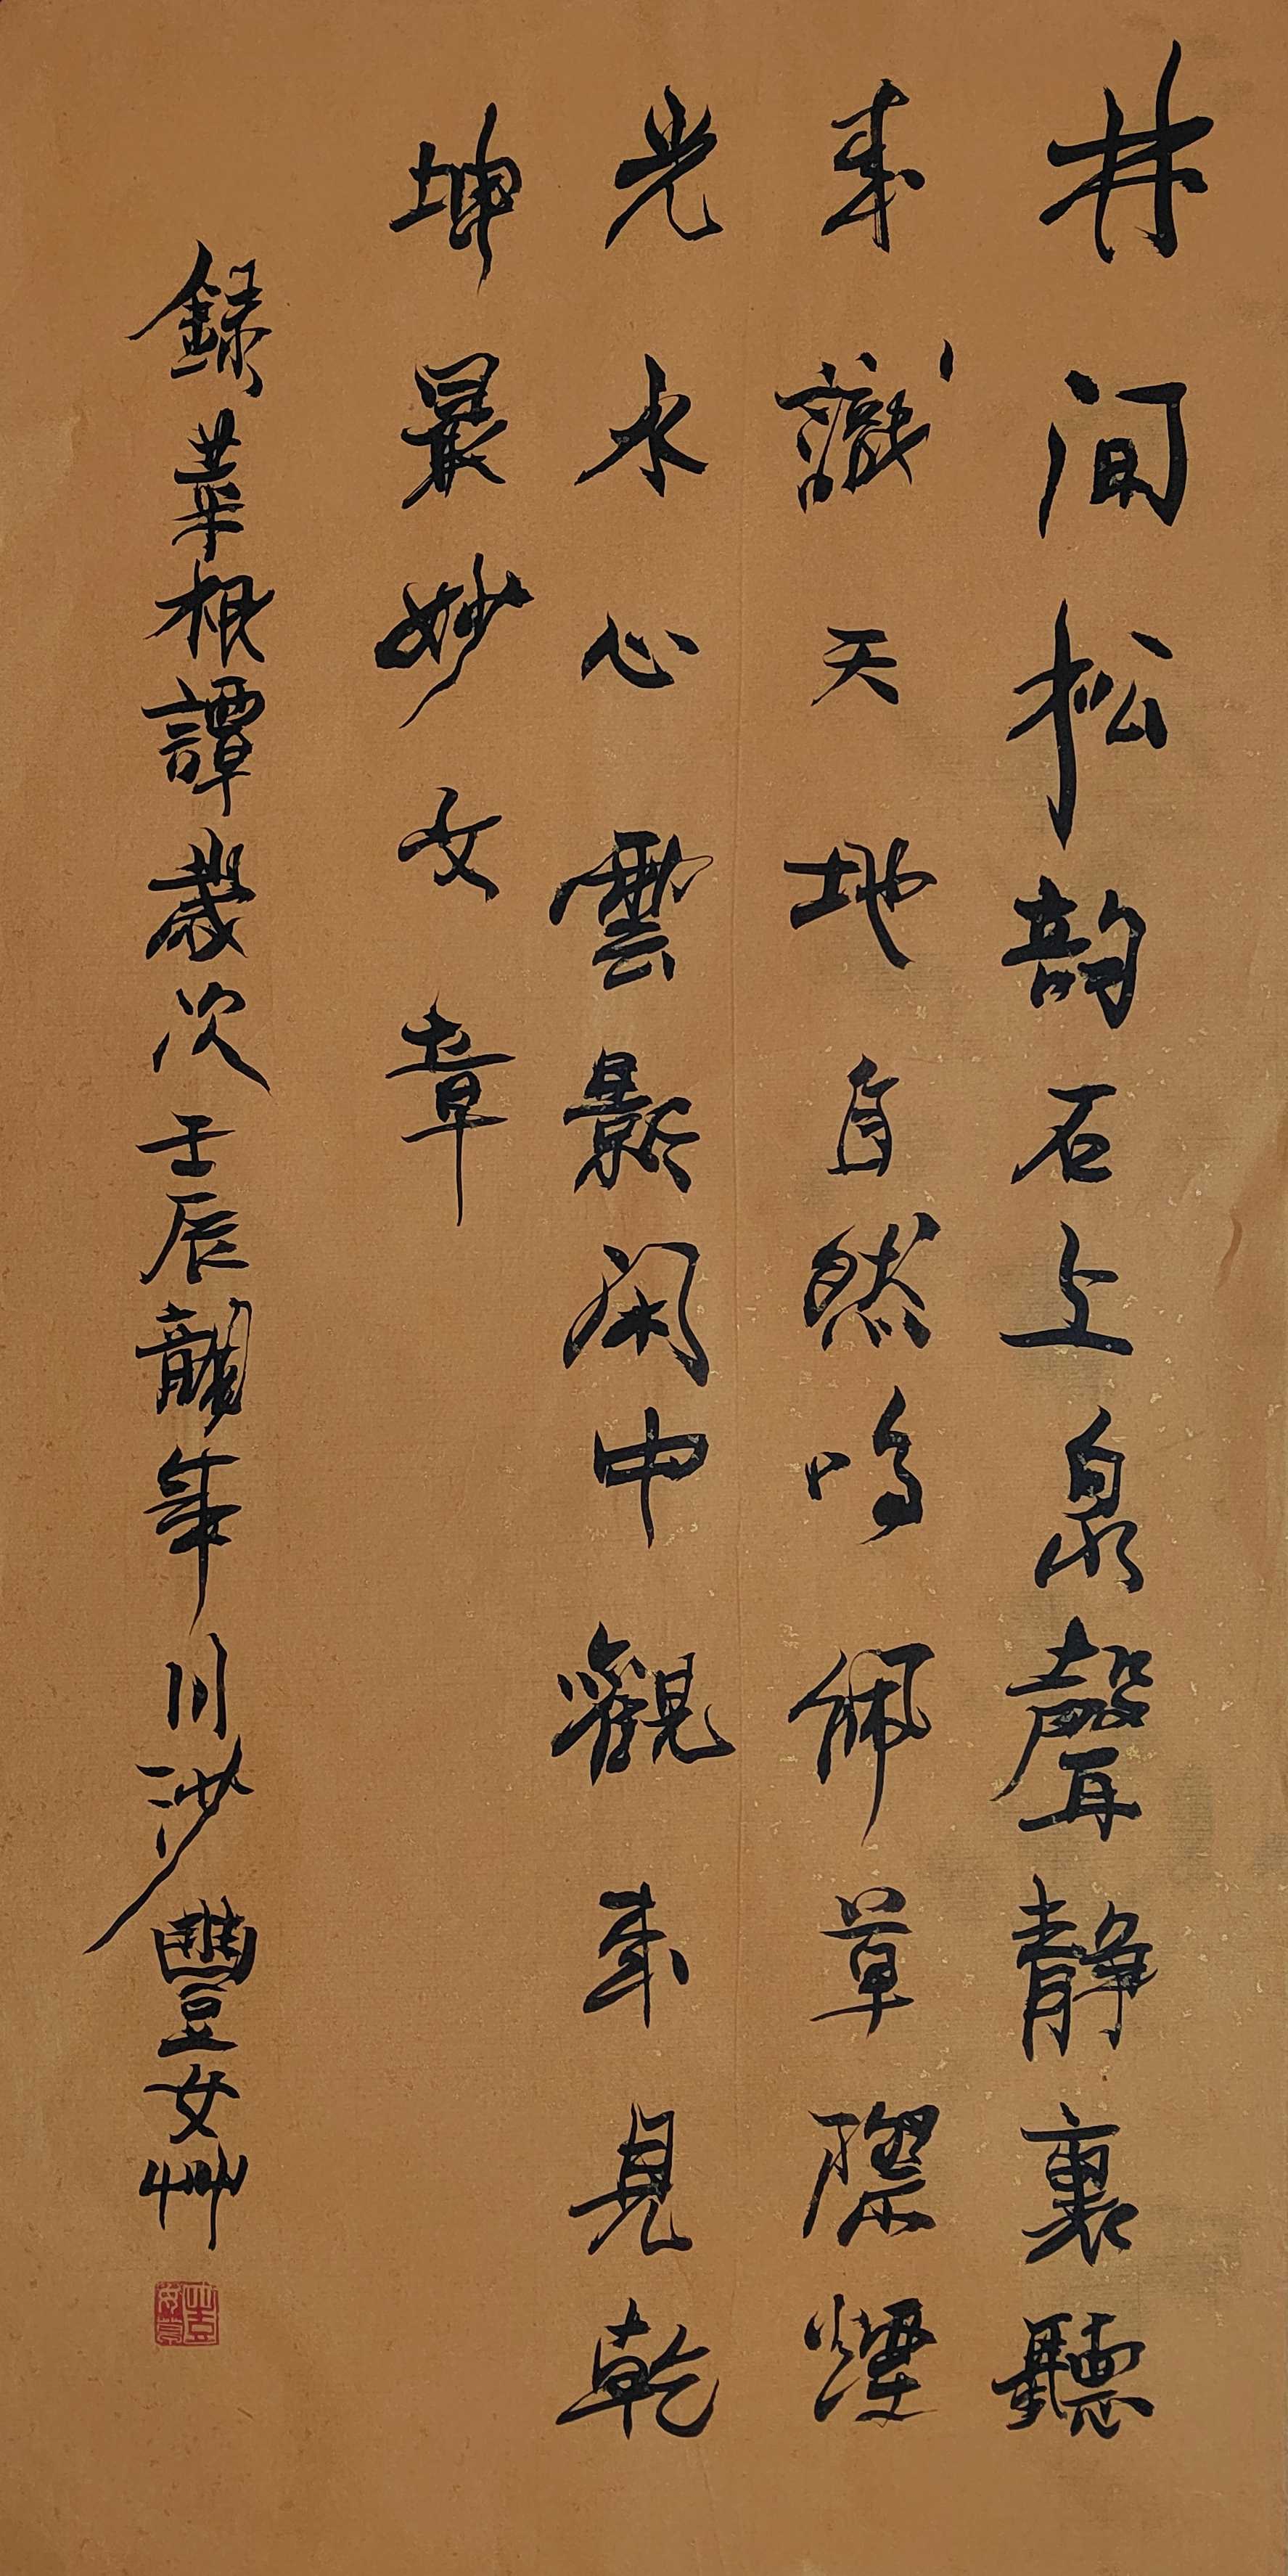 林间松韵石上泉聲静裏聽
来識天地自然鳴佩草際煙
光水心雲影闲中觀来見乾
坤最妙文章
録菜根譚歲次壬辰龍年川沙豐女艸